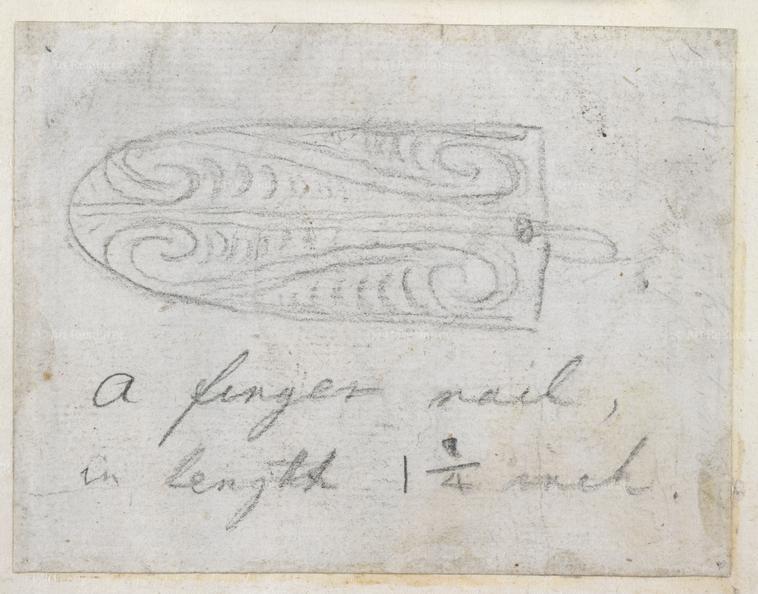 a finger nail,
in length 1 inch.